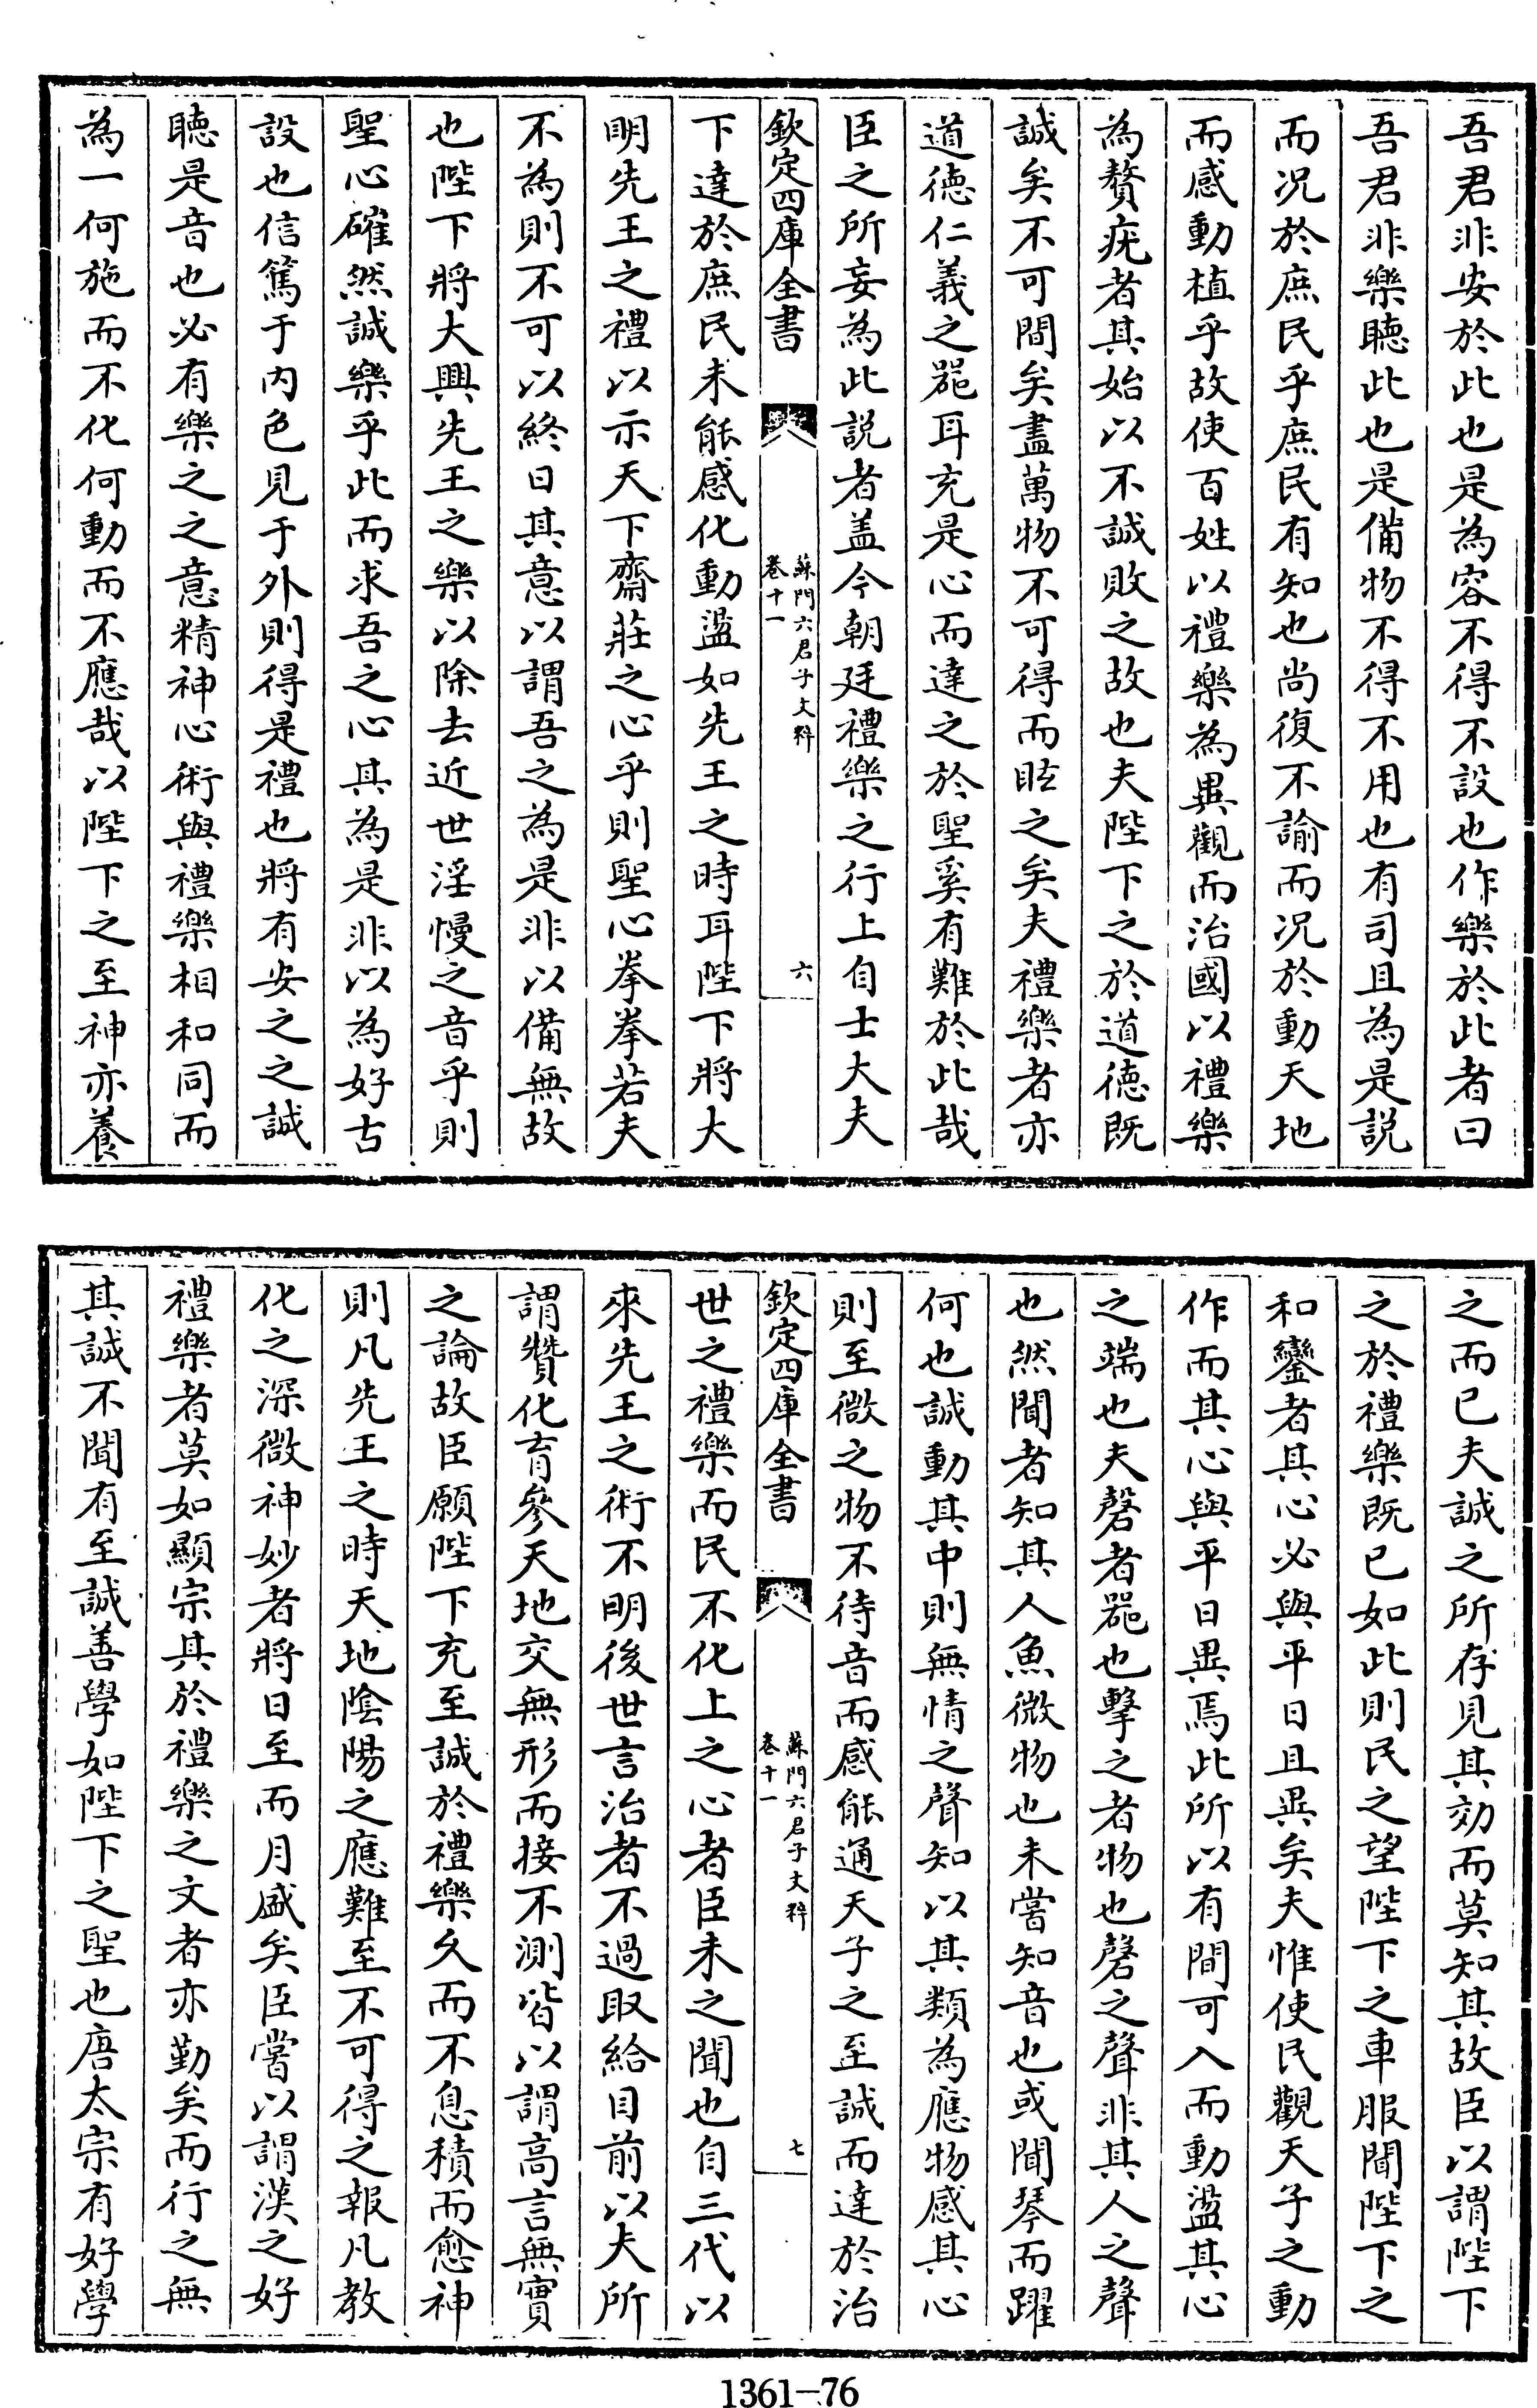 吾君非安於此也是為容不得不設也作樂於此者曰
吾君非樂聽此也是備物不得不用也有司且為是説
而况於庶民乎庶民有知也尚復不諭而况於動天地
而感動植乎故使百姓以禮樂為異觀而治國以禮樂
為贅疣者其始以不誠敗之故也夫陛下之於道徳既
誠矣不可間矣盡萬物不可得而眩之矣夫禮樂者亦
道徳仁義之噐耳充是心而達之於聖奚有難於此哉
臣之所妄為此説者盖今朝廷禮樂之行上自士大夫
欽定四庫全書
蘇門六君子文粹
卷十一
六
下達於庶民未能感化動盪如先王之時耳陛下將大
明先王之禮以示天下齋莊之心乎則聖心拳拳若夫
不為則不可以終日其意以謂吾之為是非以備無故
也陛下將大興先王之樂以除去近世淫慢之音乎則
聖心確然誠樂乎此而求吾之心其為是非以為好古
設也信篤于内色見于外則得是禮也將有安之之誠
聽是音也必有樂之之意精神心術與禮樂相和同而
為一何施而不化何動而不應哉以陛下之至神亦養
之而已夫誠之所存見其効而莫知其故臣以謂陛下
之於禮樂既已如此則民之望陛下之車服聞陛下之
和鑾者其心必與平日且異矣夫惟使民觀天子之動
作而其心與平日異焉此所以有間可入而動盪其心
之端也夫磬者噐也擊之者物也磬之聲非其人之聲
也然聞者知其人魚微物也未嘗知音也或聞琴而躍
何也誠動其中則無情之聲知以其類為應物感其心
則至微之物不待音而感能通天子之至誠而達於治
欽定四庫全書
蘇門六君子文粹
卷十一
七
世之禮樂而民不化上之心者臣未之聞也自三代以
來先王之術不明後世言治者不過取給目前以夫所
謂贊化育參天地交無形而接不測皆以謂高言無實
之論故臣願陛下充至誠於禮樂久而不息積而愈神
則凡先王之時天地陰陽之應難至不可得之報凡教
化之深微神妙者將日至而月盛矣臣嘗以謂漢之好
禮樂者莫如顯宗其於禮樂之文者亦勤矣而行之無
其誠不聞有至誠善學如陛下之聖也唐太宗有好學
1361—76